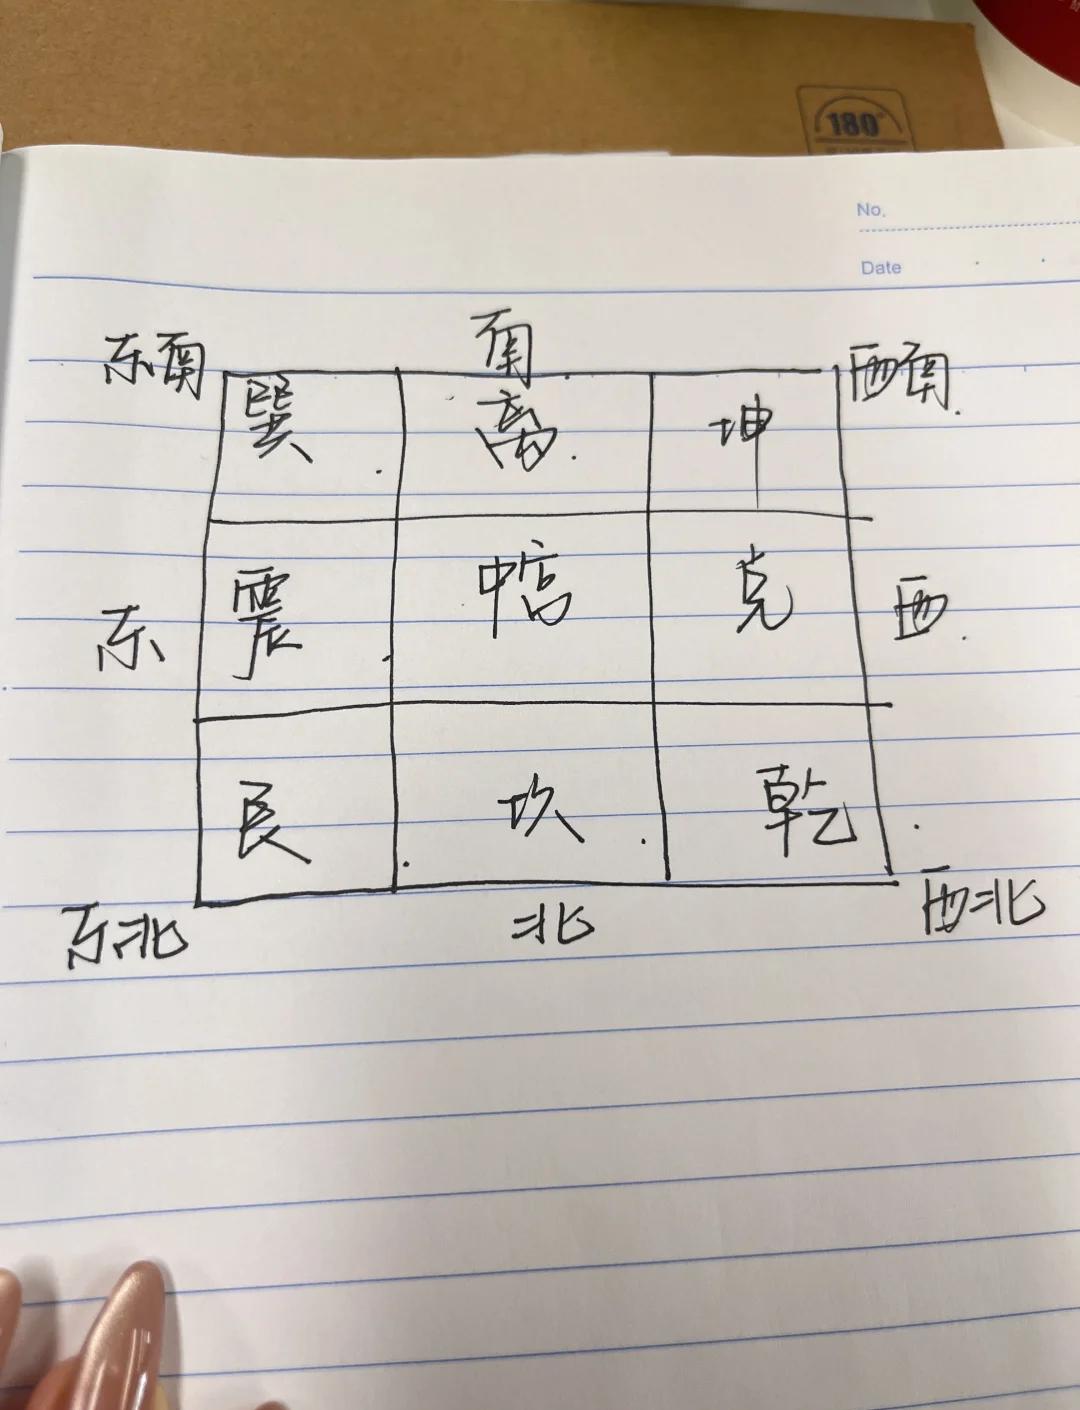 180°
No.
Date
东南 南 西南
巽 离 坤
东 震 中宫 兑 西
艮 坎 乾
东北 北 西北